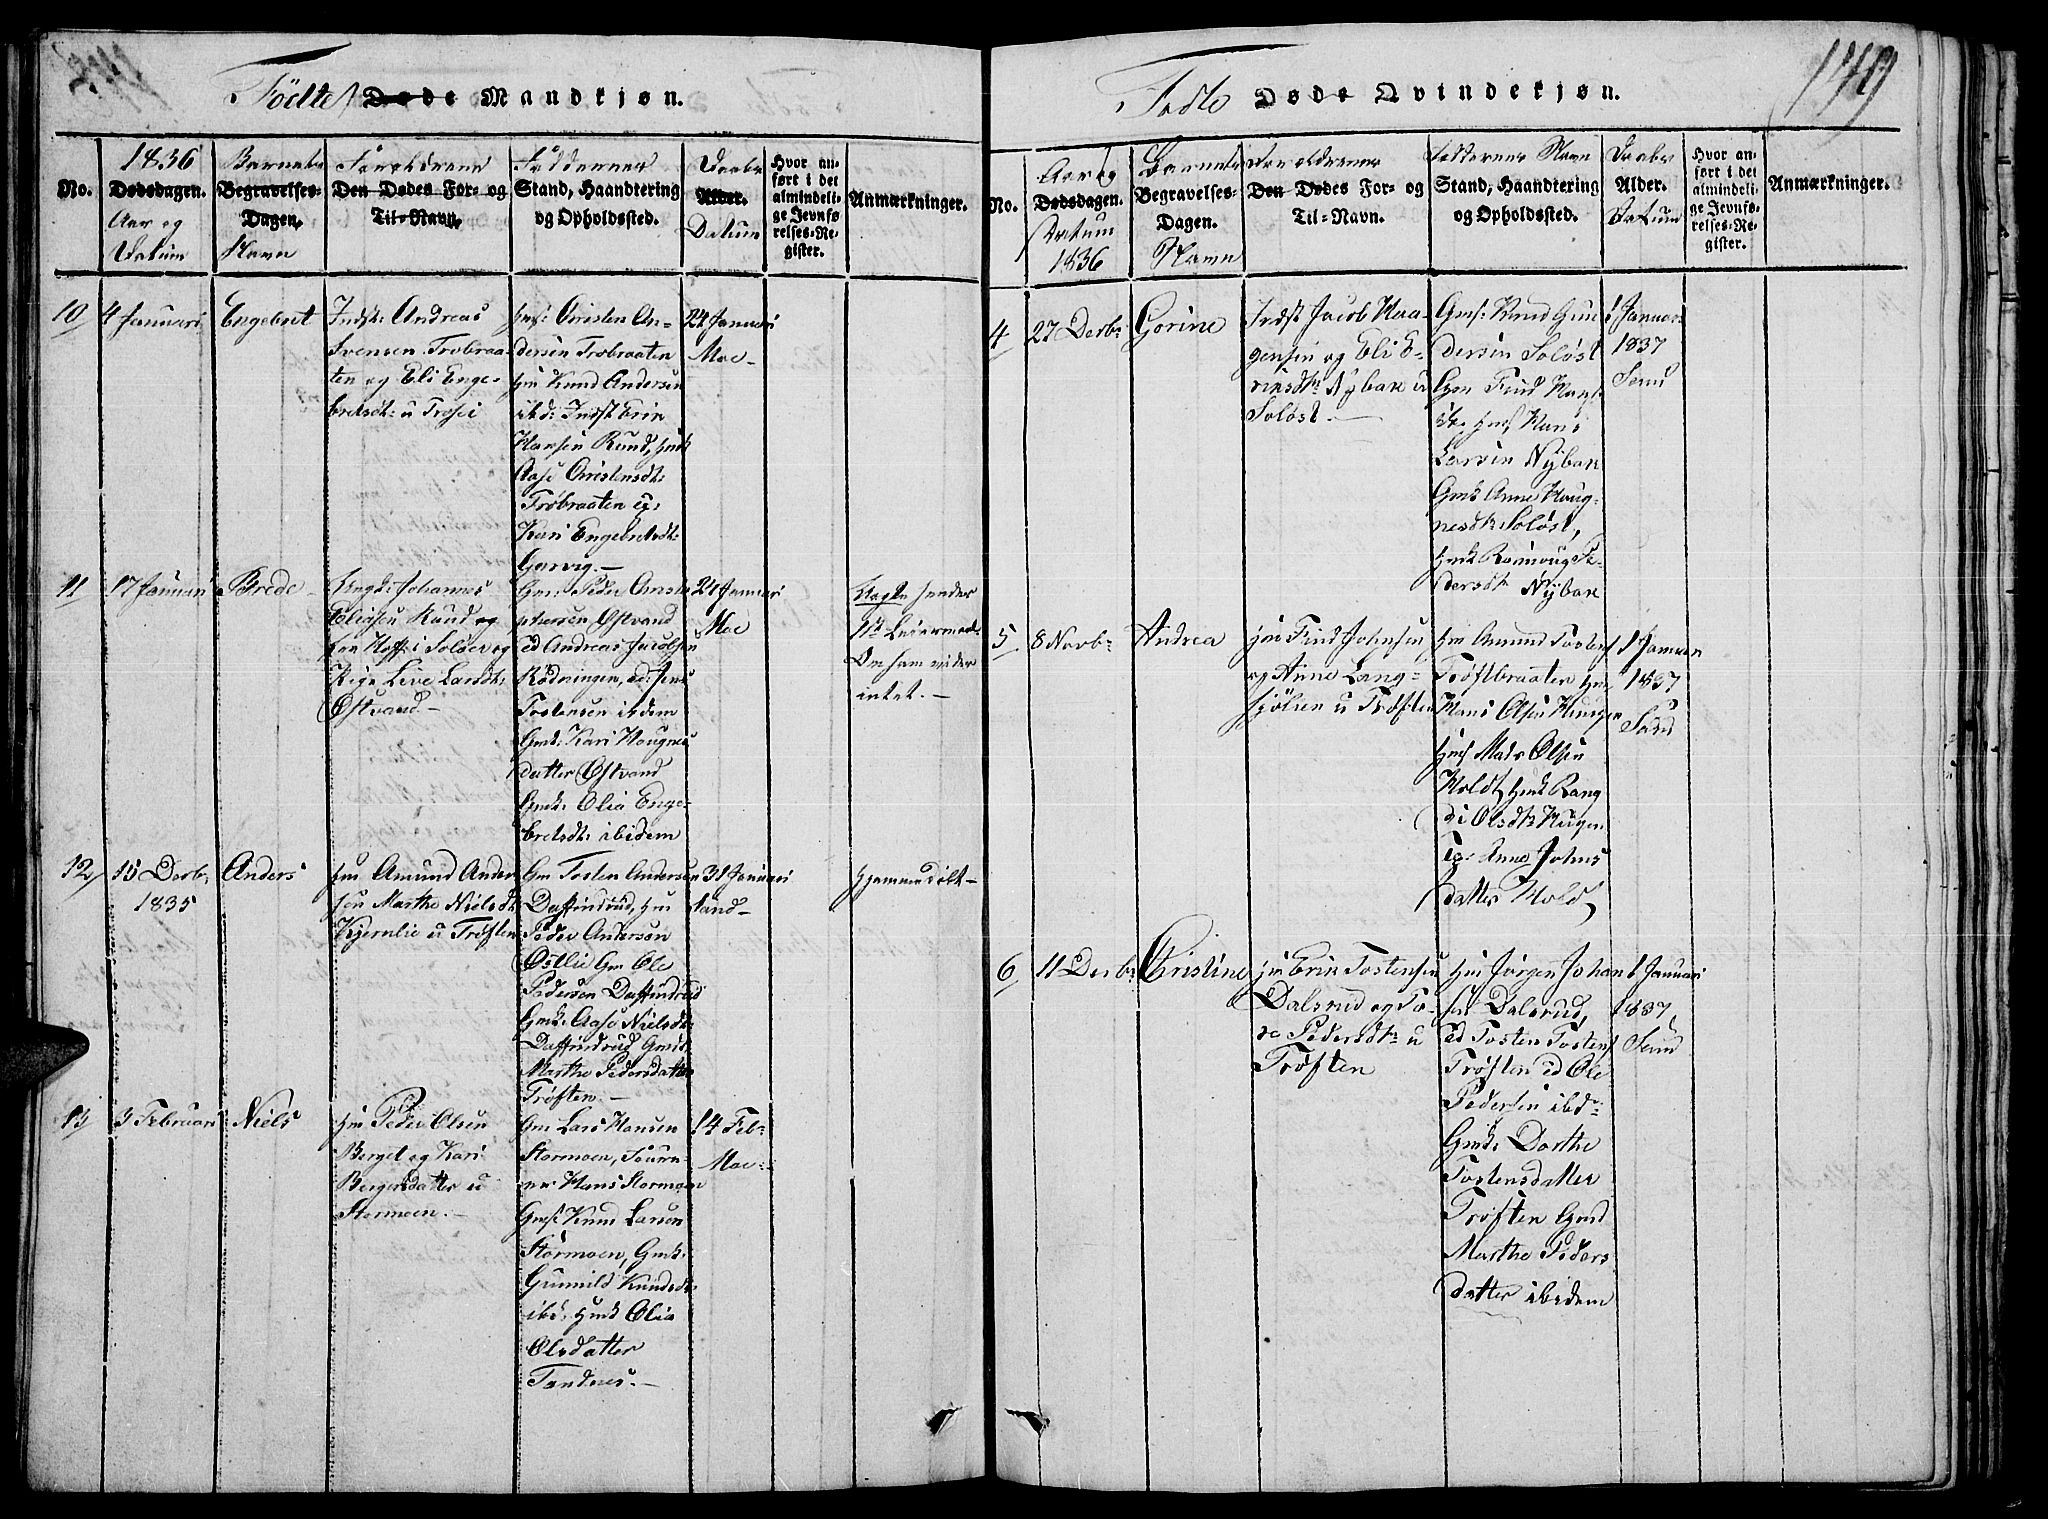 149
Födte Døde Mandkjøn.
No.
1836 Dødsdagen. Aar og Datum
Barnets Begravelses-Dagen. Navn
Foreldrene Den Dødes For- og Til-Navn.
Faddernes Stand, Haandtering og Opholdssted.
Daabs Alder. Datum
Hvor anført i det almindelige Jevnførelses-Register.
Anmærkninger.
10 4 Januari Engebret
Indst: Andreas
Svensen Trobraa-
ten og Eli Enge-
bretsdt: u Trysei
Christen An-
dersen Trobraaten
Gm Knud Andersen
ibd: Indst Erik
Hansen Rund,
Aase Christensdt:
Trøbraaten
Kari Engebretsdt:
Garvig.—
24 Januari
Moe—
11 17 Januari Brede
Ungk: Johannes
Eliasen Rund
fra Hoff i Soløer og
Pige Live Larsdt:
Østvand—
Gm: Peder Christo
phersen Østvand
Andreas Jacobsen
Rödningen,
Tostensen ibdem
Gmk: Kari Haugnes
datter Østvand
Gmk: Olia Enge-
bretsdt: ibidem
24 Januari
Moe
Begte hendes
1ste Leiermaal
Om ham vides
intet.—
12 15 Decbr: Anders
1835
Gm Amund Ander
sen Marthe Nielsdt
Kjernlie u Trøften
Gm Tosten Andersen
Daffindrud,
Peder Andersen
Østlie Gm Ole
Pedersen Daffindrud
Gmk: Aase Nielsdt:
Daffindrud
Marthe Pedersdatter
Trøften.—
31 Januari
Sand—
Hjemmedøbt—
13 3 Februari Niels
Peder Olsen
Berget og Kari
Bergersdatter u
Stormoen.—
Gm: Lars Hansen
Stormoen,
Hans Stormoen
Gmf: Knud Larsen
Stormoen, Gmk:
Gunnild Knudsdt:
ibd, Olia
Olsdatter
Tandnes.—
14 Feb:
Moe—
Födte Døde Qvindekjøn.
No.
Aar og Dødsdagen. Datum 1836
Barnets Begravelses-Dagen. Navn
Foreldrenes Den Dødes For- og Til-Navn.
Faddernes Navn Stand, Haandtering og Opholdssted.
Daabs Alder. Datum
Hvor anført i det almindelige Jevnførelses-Register.
Anmærkninger.
4 27 Decbr: Gorine
Indst Jacob Haa-
gensen og Eli E-
riksdtr Nÿbak u
Soløst.—
Gmf: Knud Gun
dersen Soløst
Gm Knud Hans
Hans
Larsen Nÿbak
Gmk Anne Haug-
nesdtr: Soløst,
Rønnoug Pe-
dersdtr Nÿbak
1 Januar
1837
Sand
5 8 Novbr: Andrea
Johnsen
og Anne Lang-
sjølien u Trøften
Gm Amund Tostens
Trøftbraaten
Hans Olsen Haugen
Mads Olsen
Holdt, Rang
di Olsdtr Haugen
Anne Johns
datter Hold
1 Januar
1837
Sand
6 11 Decbr: Christine
Gm Erik Tostensen
Dalsrud og To-
re Pedersdtr u
Trøften
Gm Jörgen Johan
sen Dalsrud,
Tosten Tostens
Trøften Ole
Pedersen ibd:
Gmk: Dorthe
Tostensdatter
Trøften Gmk
Marthe Peders
datter ibidem
1 Januari
1837,
Sand